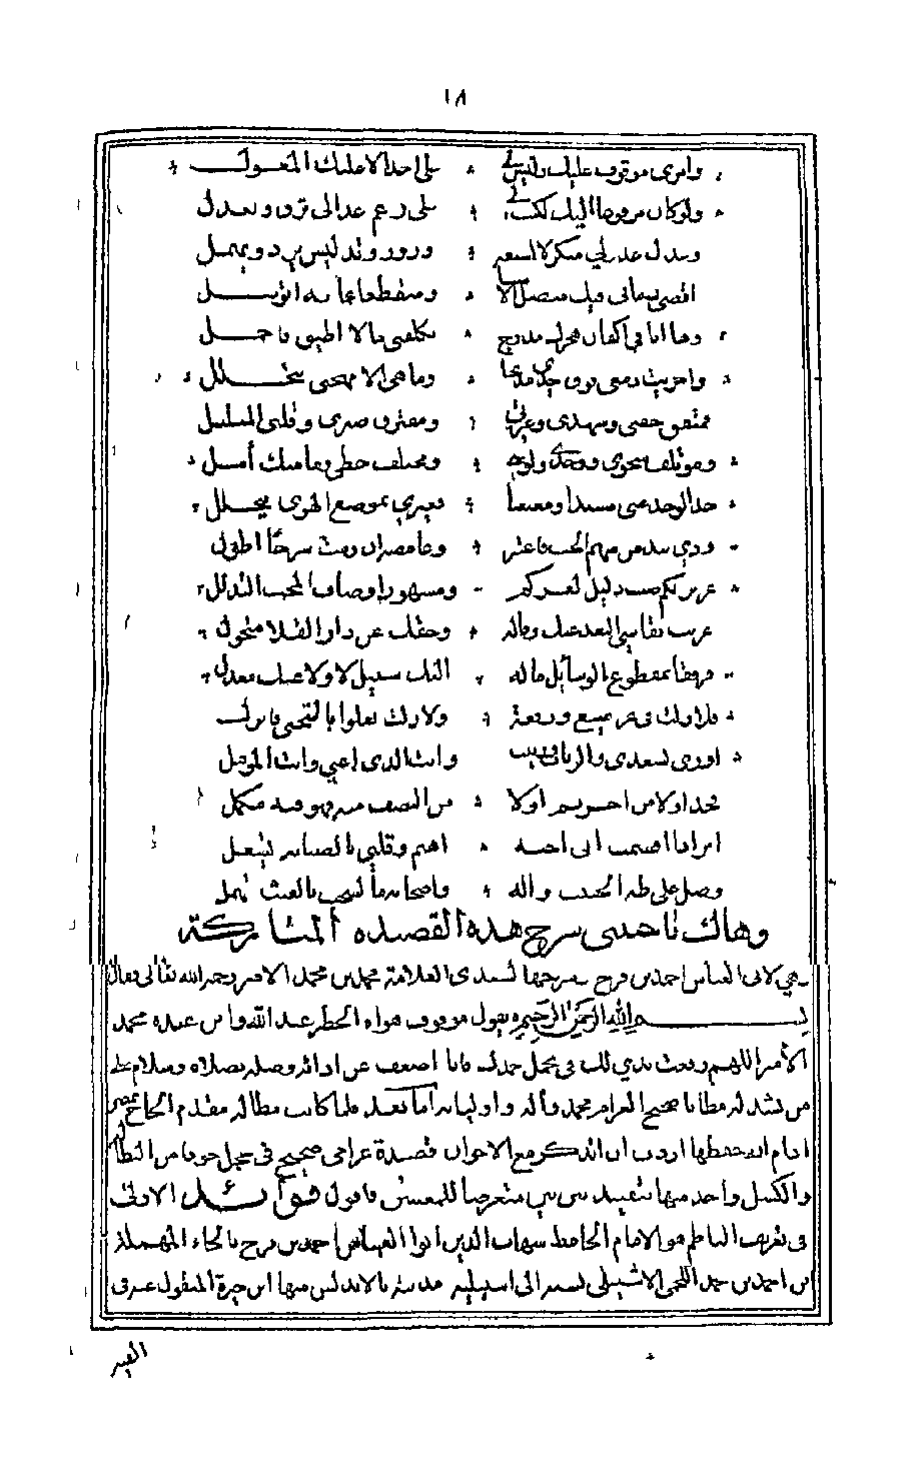 ١٨
وامرى موقوف عليك وليس لي * على احد الا عليك المعول
ولو كان مرفوعا اليك لكنت لي * على رغم عذالى ترق وتعدل
وعذل عذولي منكر لا اسيغه * وزور وتدليس يرد ويهمل
اقضي زمانى فيك متصل الاسى * ومنقطعا عما به اتوصل
وها انا في اكفان هجرك مدرج * تكلفني ما لا اطيق فاحمل
واجريت دمعى فوق خدي مدبجا * وما هي الا مهجتي تتحلل
فمتفق جفنى وسهدى وعبرتي * ومفترق صبرى وقلبي المبلبل
ومؤتلف شجوى ووجدى ولوعتي * ومختلف حظي وما منك آمل
خذ الوجد عنى مسندا ومعنعنا * فغيري بموضوع الهوى يتحلل
وذي نبذ من مبهم الحب فاعتبر * وغامضه ان رمت شرحا اطول
عزيز بكم صب ذليل لغيركم * ومشهور اوصاف المحب التذلل
غريب يقاسي البعد عنك وماله * وحقك عن دار القلا متحول
فرفقا بمقطوع الوسائل ماله * اليك سبيل لا ولا عنك معدل
فلا زلت في عز منيع ورفعة * ولا زلت تعلو بالتجنى فانزل
اوري بسعدى والرباب وزينب * وانت الذى اعني وانت المؤمل
فخذ اولا من آخر ثم اولا * من النصف منه فهو فيه مكمل
ابر اذا اقسمت انى بحبه * اهيم وقلبي بالصبابة يشعل
وصل على طه الحبيب واله * واصحابه
وهاك يا حبيبى شرح هذه القصيده المباركة
وهي لابى العباس احمد بن فرح شرحها لسيدى العلامة محمد بن محمد الامير رحمه الله تعالى فقال
بسم الله الرحمن الرحيم يقول مربوب مولاه الخطير عبد الله وابن عبده محمد
الأمير اللهم رفعت يدي لك فى مجمل حمدك فانا اضعف عن ادائه وصله بصلاة وسلام على
من تشد له مطايا صحيح الغرام محمد وآله واوليائه أما بعد فلما كانت
اردت ان اتذكر مع الاخوان قصيدة غرامى صحيح فى
والكسل واحد منها متعرضا للمعنيين فاقول فوائد الاولى
فى تعريف الناظم هو الامام الحافظ شهاب الدين ابوا العباس احمد بن فرح بالحاء المهملة
ابن احمد بن محمد اللخمى الاشبيلى نسبه الى اشبيلية مدينة بالاندلس